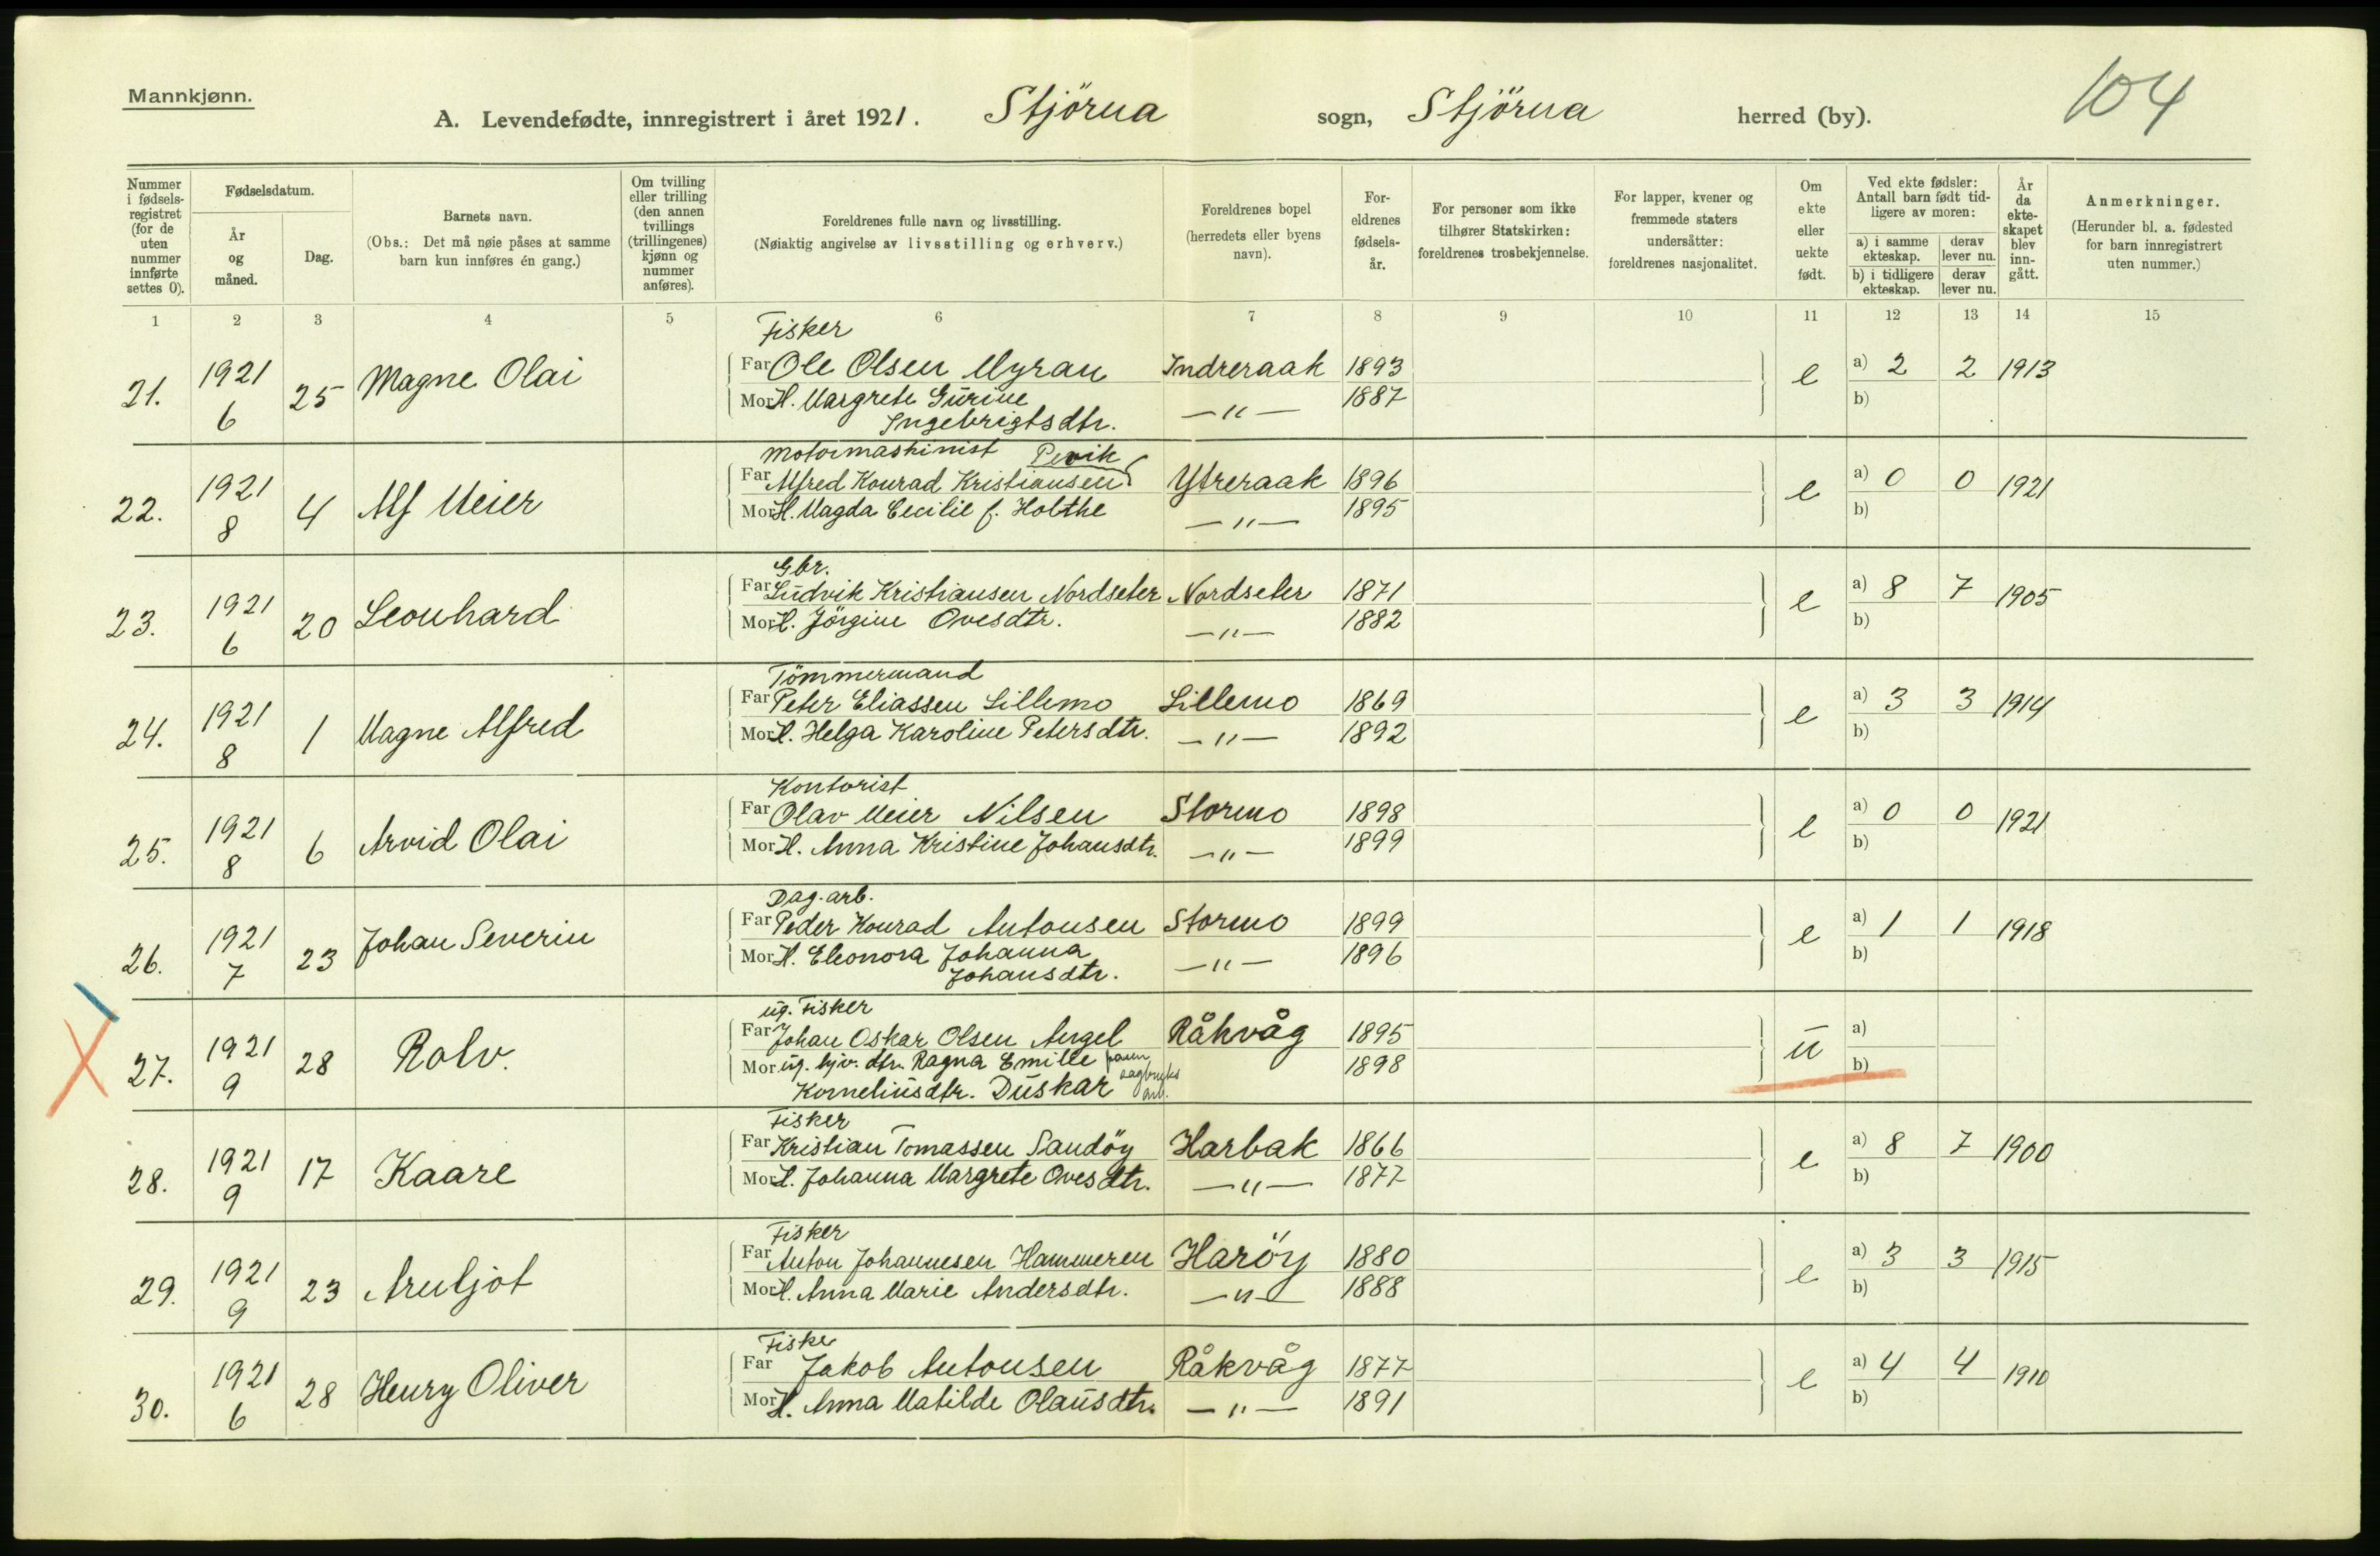 Mannkjønn.
104
A. Levendefødte, innregistrert i året 1921. Stjörna sogn, Stjörna herred (by).
Nummer i fødselsregistret (for de uten nummer innførte settes 0).
Fødselsdatum.
År og måned.
Dag.
Barnets navn.
(Obs.: Det må nøie påses at samme barn kun innføres én gang.)
Om tvilling eller trilling (den annen tvillings (trillingenes) kjønn og nummer anføres).
Foreldrenes fulle navn og livsstilling.
(Nøiaktig angivelse av livsstilling og erhverv.)
Foreldrenes bopel (herredets eller byens navn).
Foreldrenes fødselsår.
For personer som ikke tilhører Statskirken: foreldrenes trosbekjennelse.
For lapper, kvener og fremmede staters undersåtter: foreldrenes nasjonalitet.
Om ekte eller uekte født.
Ved ekte fødsler: Antall barn født tidligere av moren:
a) i samme ekteskap. derav lever nu.
b) i tidligere ekteskap. derav lever nu.
År da ekteskapet blev inngått.
Anmerkninger.
(Herunder bl. a. fødested for barn innregistrert uten nummer.)
1 2 3 4 5 6 7 8 9 10 11 12 13 14 15
Fisker
21. 1921 6 25 Magne Olai Far Ole Olsen Myran Indreraak 1893 e a) 2 2 1913
Mor H. Margrete Gurine Ingebrigtsdtr. —"— 1887 b)
Motormaskinist Pevik
22. 1921 8 4 Alf Meier Far Alfred Konrad Kristiansen Ytreraak 1896 e a) 0 0 1921
Mor H. Magda Cecilie f. Holthe —"— 1895 b)
Gbr.
23. 1921 6 20 Leonhard Far Ludvik Kristiansen Nordseter Nordseter 1871 e a) 8 7 1905
Mor H. Jörgine Ovesdtr. —"— 1882 b)
Tömmermand
24. 1921 8 1 Magne Alfred Far Peter Eliassen Lillemo Lillemo 1869 e a) 3 3 1914
Mor H. Helga Karoline Petersdtr. —"— 1892 b)
Kontorist
25. 1921 8 6 Arvid Olai Far Olav Meier Nilsen Stormo 1898 e a) 0 0 1921
Mor H. Anna Kristine Johansdtr. —"— 1899 b)
Dag.arb.
26. 1921 7 23 Johan Severin Far Peder Konrad Antonsen Stormo 1899 e a) 1 1 1918
Mor H. Eleonora Johanna Johansdtr. —"— 1896 b)
ug. Fisker
27. 1921 9 28 Rolv. Far Johan Oskar Olsen Angel Råkvåg 1895 u a)
Mor ug. hjv. dtr. Ragna Emilie 1898 b)
Korneliusdtr. Duskar
Fisker
28. 1921 9 17 Kaare Far Kristian Tomassen Sandöy Harbak 1866 e a) 8 7 1900
Mor H. Johanna Margrete Ovesdtr. —"— 1877 b)
Fisker
29. 1921 9 23 Arnljot Far Anton Johannesen Hammeren Haröy 1880 e a) 3 3 1915
Mor H. Anna Marie Andersdtr. —"— 1888 b)
Fisker
30. 1921 6 28 Henry Oliver Far Jakob Antonsen Råkvåg 1877 e a) 4 4 1910
Mor H. Anna Matilde Olausdtr. —"— 1891 b)